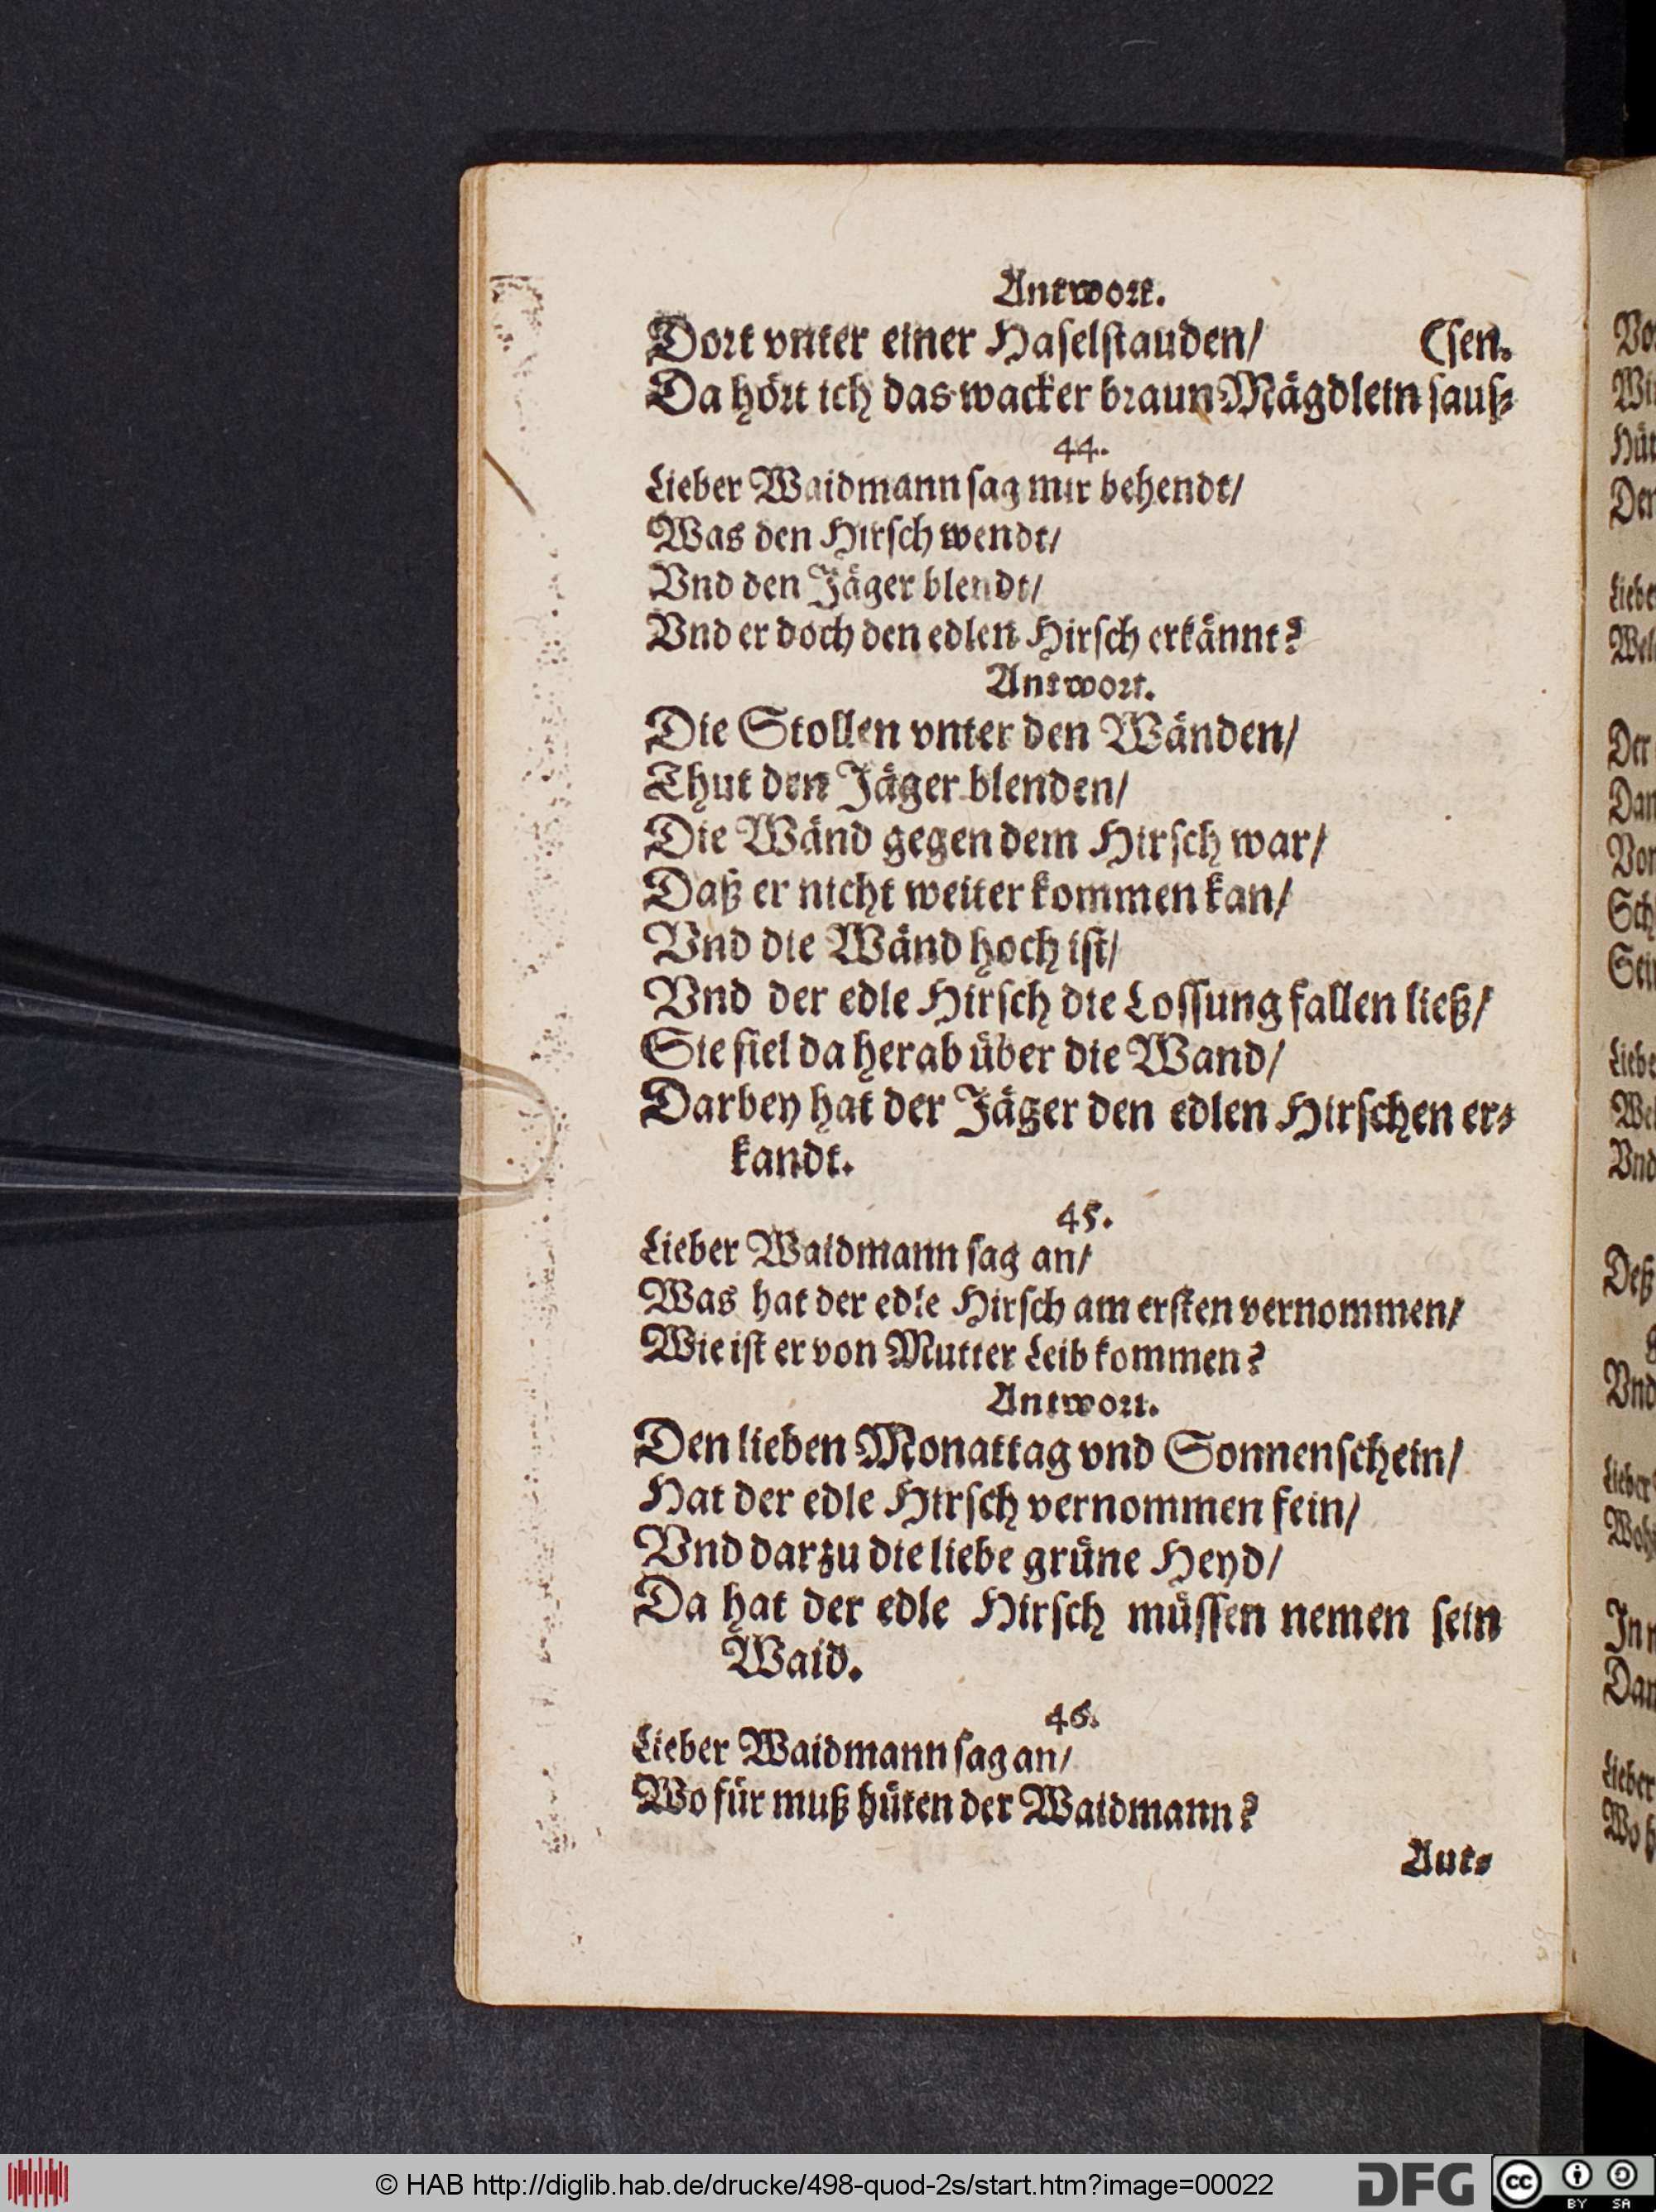 Antwort.
Dort vnter einer Haſelſtauden/ (ſen.
Da hört ich das wacker braun Mägdlein ſauſ⸗
44.
Lieber Waidmann ſag mir behendt/
Was den Hirſch wendt/
Vnd den Jäger blendt/
Vnd er doch den edlen Hirſch erkännt?
Antwort.
Die Stollen vnter den Wänden/
Thut den Jäger blenden/
Die Wänd gegen dem Hirſch war/
Daß er nicht weiter kommen kan/
Vnd die Wänd hoch iſt/
Vnd der edle Hirſch die Loſſung fallen ließ/
Sie fiel da herab über die Wand/
Darbey hat der Jäger den edlen Hirſchen er⸗
kandt.
45.
Lieber Waidmann ſag an/
Was hat der edle Hirſch am erſten vernommen/
Wie iſt er von Mutter Leib kommen?
Antwort.
Den lieben Monattag vnd Sonnenſchein/
Hat der edle Hirſch vernommen fein/
Vnd darzu die liebe grüne Heyd/
Da hat der edle Hirſch müſſen nemen ſein
Waid.
46.
Lieber Waidmann ſag an/
Wo für muß hüten der Waidmann?
Aut⸗
Vo
Wi
Hüt
Den
Liebe
Wel
Der
Dan
Von
Sch
Sein
Liebe
Wel
Vnd
Deß
Vnd
Lieber
Woh
Jn
Dan
Lieber
Wo h
© HAB http://diglib.hab.de/drucke/498-quod-2s/start.htm?image=00022
DFG
cc
BY SA